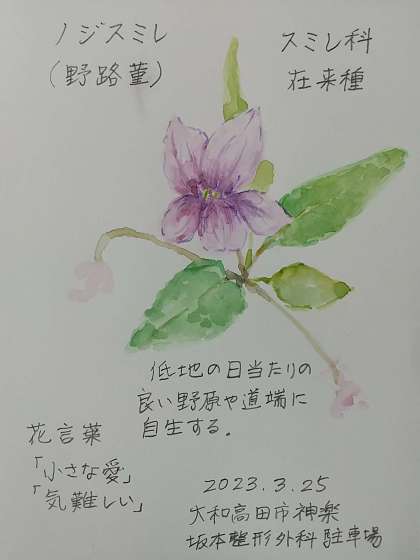 ノジスミレ
(野路菫)
スミレ科
在来種
低地の日当たりの
良い野原や道端に
自生する。
花言葉
「小さな愛」
「気難しい」
2023.3.25
大和高田市神楽
坂本整形外科駐車場